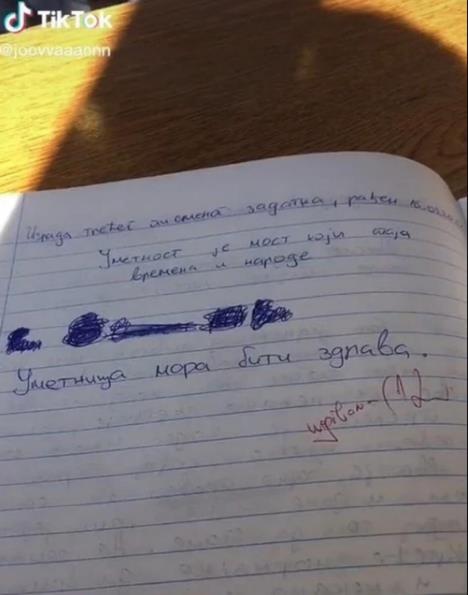 TikTok
@joovvaaaonn
Израда трећег писменог задатка, рађен
Уметност је мост који спаја
времена и народе
Уметница мора бити здрава.